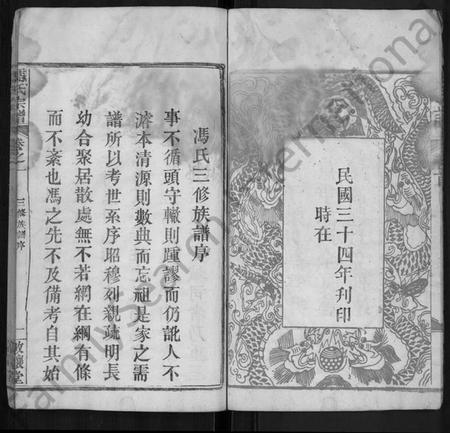 民國三十四年刊印
時在
馮氏三修族譜序
事不循頭守轍則踵謬而仍訛人不
濬本清源則數典而忘祖是家之需
譜所以考世系序昭穆列親疏明長
幼合聚居散處無不若網在綱有條
而不紊也馮之先不及備考自其始
馮氏宗譜
卷之一
三修族譜序
一
敦讓堂